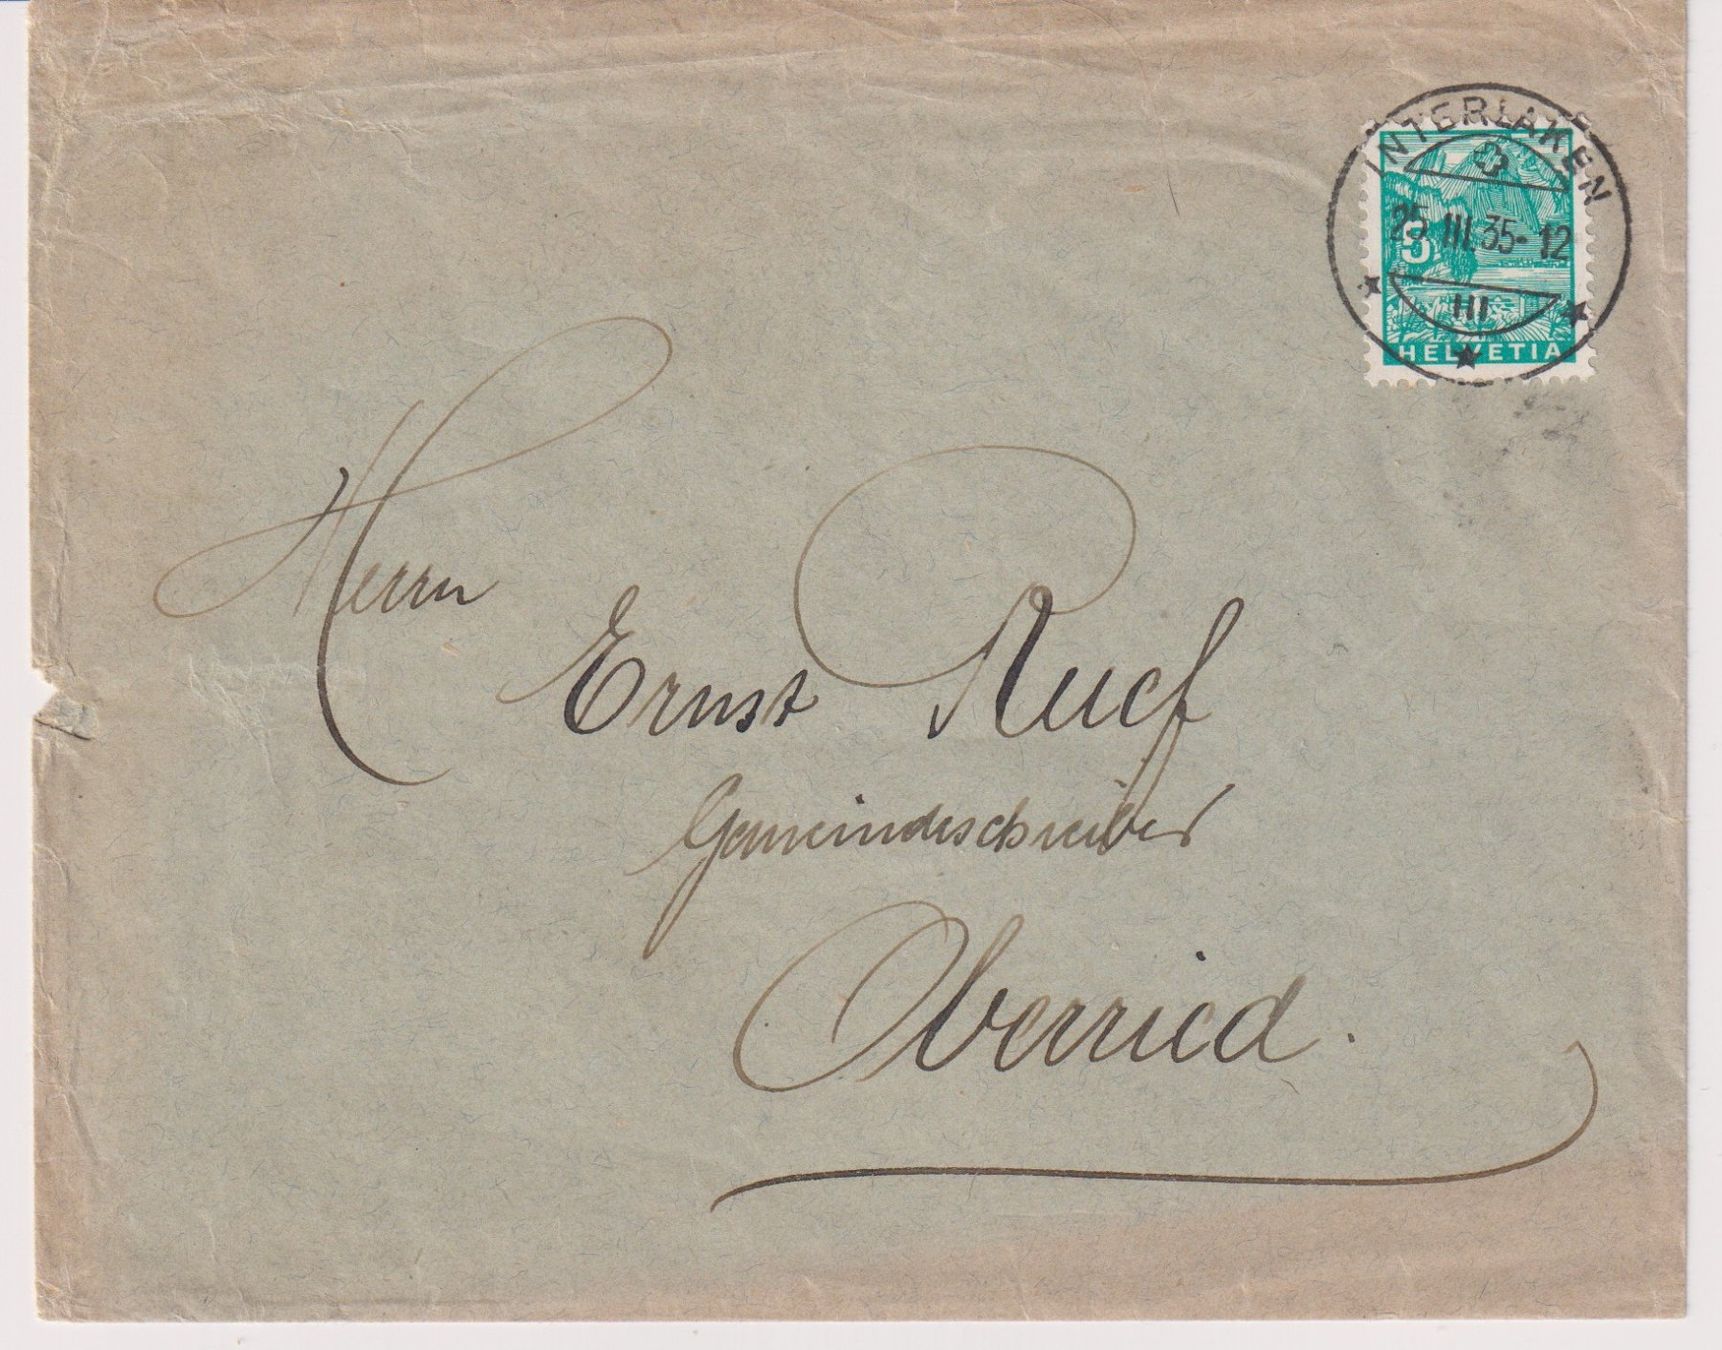 INTERLAKEN
25.III.35-12
5
III
HELVETIA
Herrn
Ernst Ruef
Gemeindeschreiber
Oberried.